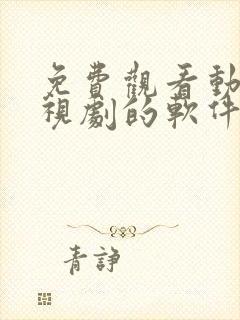 免費觀看動
視劇的軟件
青諍